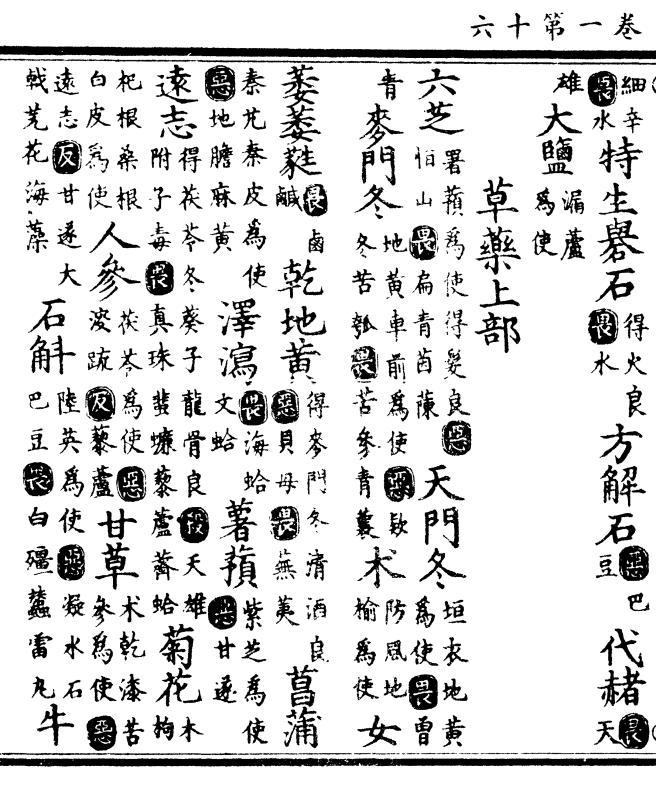 卷一第十六
細辛畏水特生礜石得火良畏水方解石惡巴豆代赭畏天
雄大鹽漏蘆為使
草藥上部
六芝署蕷為使得髮良惡恒山畏扁青茵蔯天門冬垣衣地黃為使畏曾
青麥門冬地黃車前為使惡款冬苦瓠畏苦參青蘘术防風地榆為使女
萎萎蕤畏鹵鹹乾地黃得麥門冬清酒良惡貝母畏蕪荑菖蒲
秦艽秦皮為使惡地膽麻黃澤瀉畏海蛤文蛤薯蕷紫芝為使惡甘遂
遠志得茯苓冬葵子龍骨良殺天雄附子毒畏真珠蜚蠊藜蘆薺蛤菊花术枸
杞根桑根白皮為使人參茯苓為使惡溲疏反藜蘆甘草术乾漆苦參為使惡
遠志反甘遂大戟芫花海藻石斛陸英為使惡凝水石巴豆畏白殭蠶雷丸牛